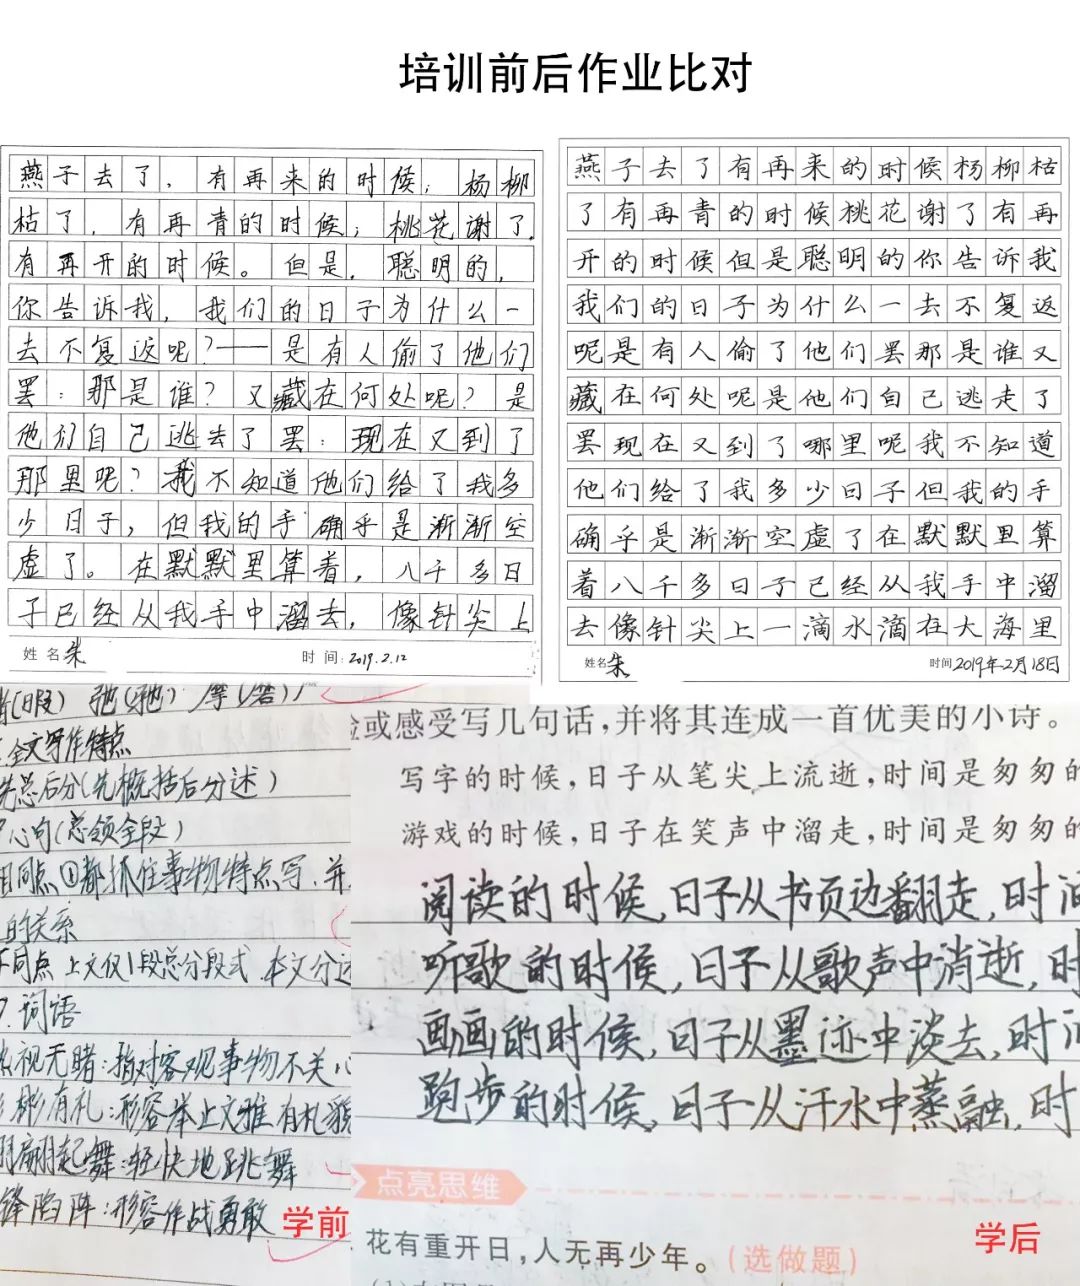 培训前后作业比对
燕子去了，有再来的时候；杨柳
枯了，有再青的时候；桃花谢了，
有再开的时候。但是，聪明的，
你告诉我，我们的日子为什么一
去不复返呢？——是有人偷了他们
罢：那是谁？又藏在何处呢？是
他们自己逃去了罢：现在又到了
那里呢？我不知道他们给了我多
少日子，但我的手确乎是渐渐空
虚了。在默默里算着，八千多日
子已经从我手中溜去，像针尖上
姓名 朱
时间：2019.2.12
燕子去了有再来的时候杨柳枯
了有再青的时候桃花谢了有再
开的时候但是聪明的你告诉我
我们的日子为什么一去不复返
呢是有人偷了他们罢那是谁又
藏在何处呢是他们自己逃走了
罢现在又到了哪里呢我不知道
他们给了我多少日子但我的手
确乎是渐渐空虚了在默默里算
着八千多日子已经从我手中溜
去像针尖上一滴水滴在大海里
姓名 朱
时间 2019年2月18日
(暇) 弛(驰)
全文写作特点
先总后分(先概括后分述)
心句(总领全段)
相同点①都抓住事物特点写.并
的关系
不同点 上文仅1段总分段式.本文分述
7.词语
视无睹：指对客观事物不关心
彬有礼：形容举止文雅有礼貌
翩起舞：轻快地跳舞
锋陷阵：形容作战勇敢
学前
或感受写几句话，并将其连成一首优美的小诗。
写字的时候，日子从笔尖上流逝，时间是匆匆的
游戏的时候，日子在笑声中溜走，时间是匆匆的
阅读的时候，日子从书页边翻走，时间
听歌的时候，日子从歌声中消逝，时
画画的时候，日子从墨迹中淡去，时间
跑步的时候，日子从汗水中蒸融，时
点亮思维
花有重开日，人无再少年。（选做题）
学后